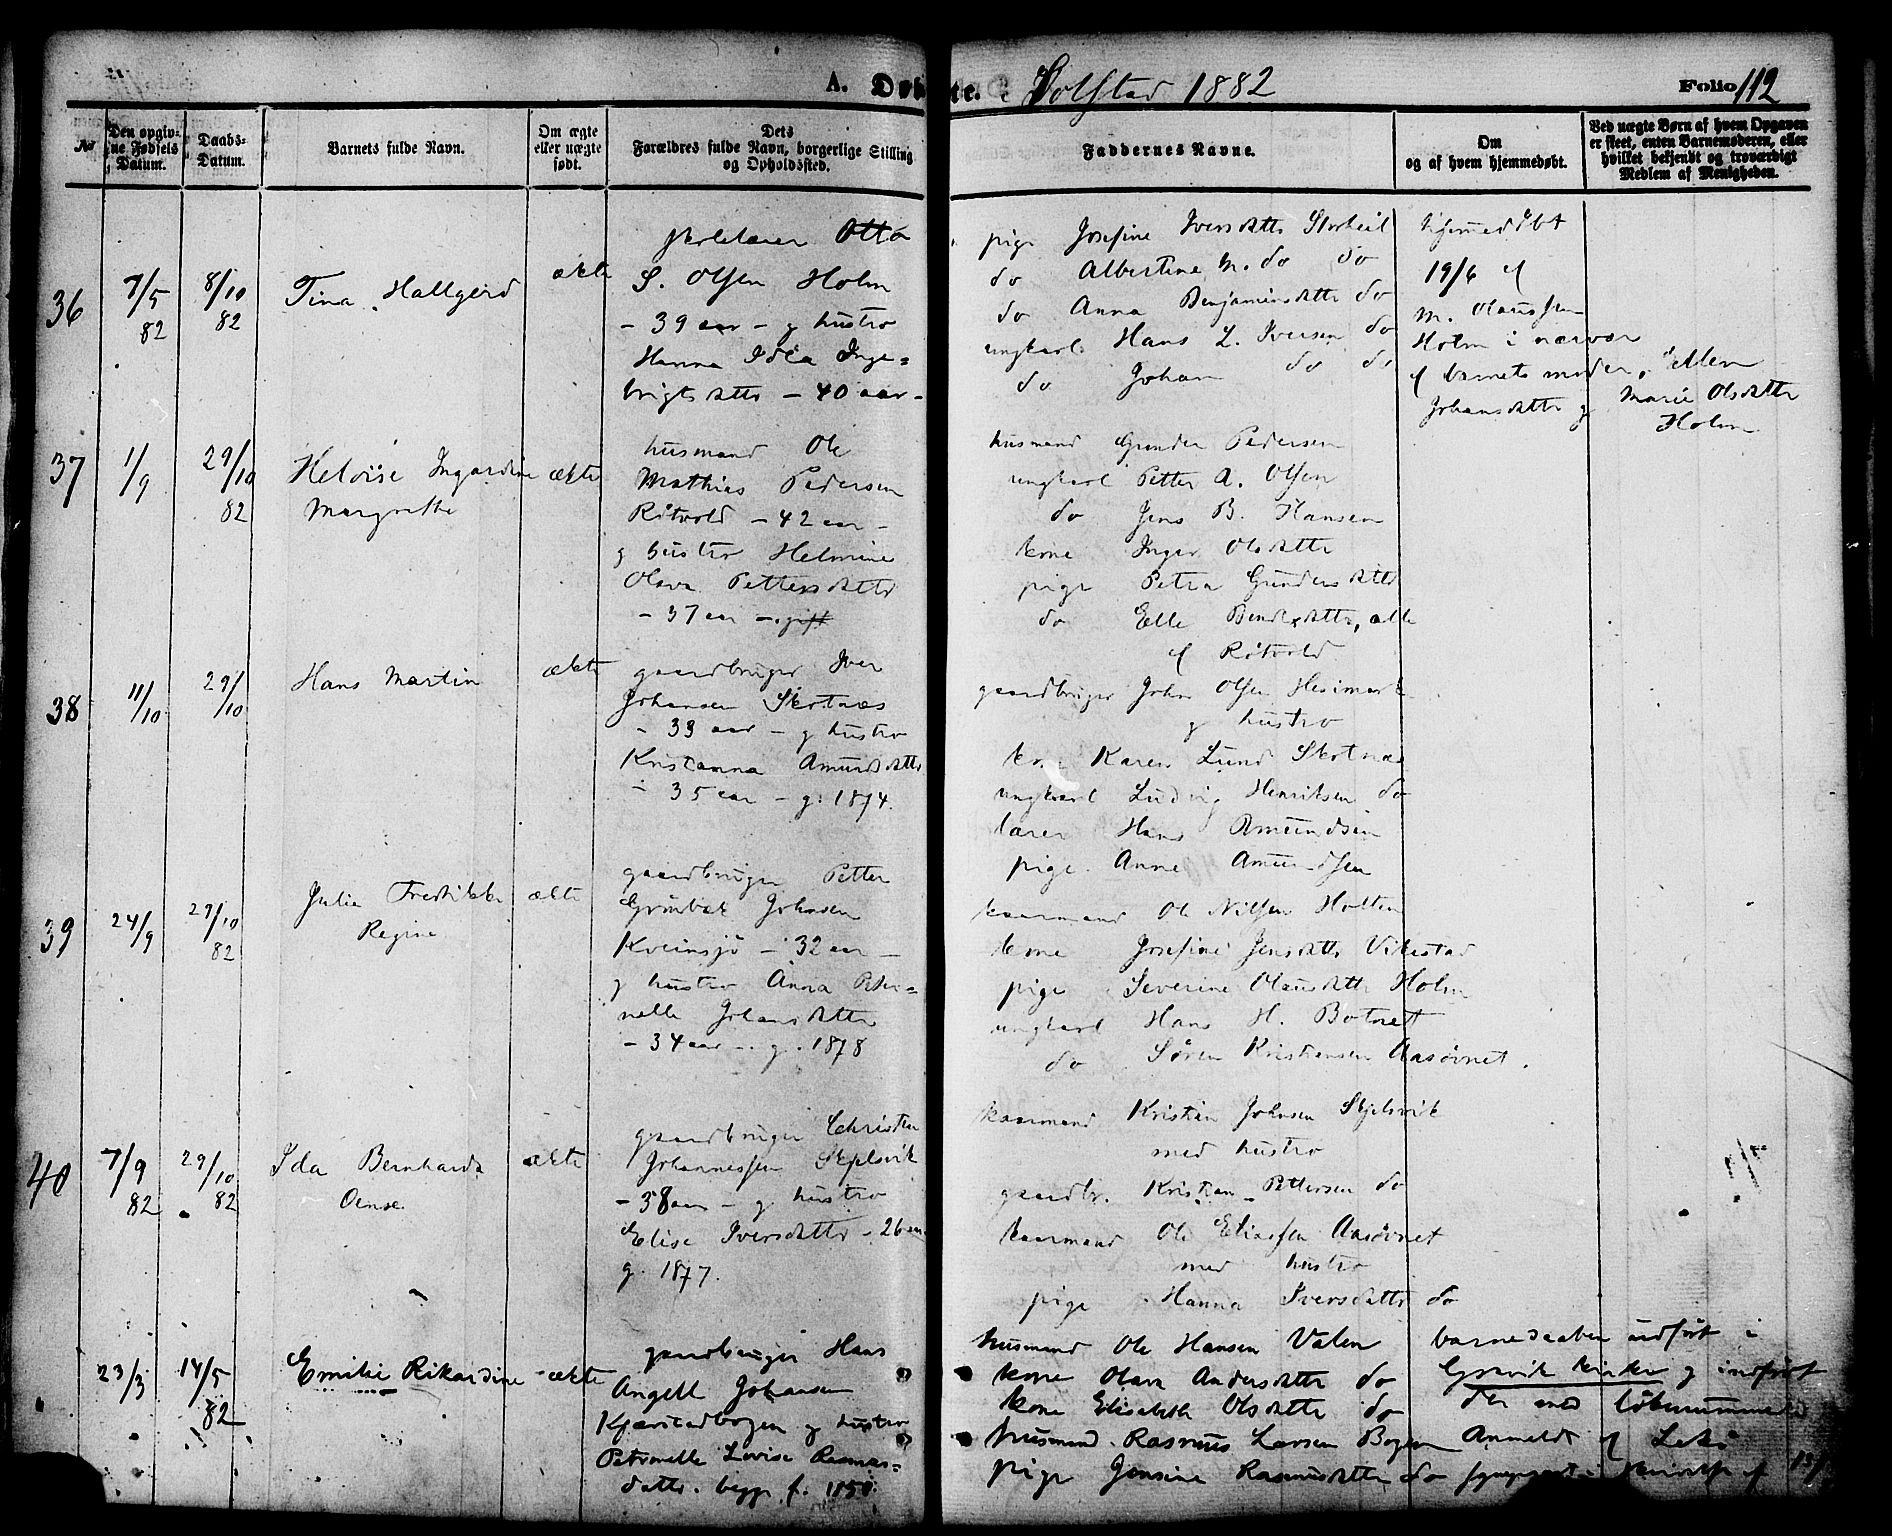 A. Døbte. Solstad 1882 Folio 112
No
Den opgivne Fødsels Datum.
Daabs-Datum.
Barnets fulde Navn.
Om ægte eller uægte født.
Dets Forældres fulde Navn, borgerlige Stilling og Opholdssted.
Faddernes Navne.
Om og af hvem hjemmedøbt.
Ved uægte Børn af hvem Opgaven er skeet, enten Barnemoderen, eller hvilket bekjendt og troværdigt Medlem af Menigheden.
36
7/5 82
8/10 82
Tina Hallgerd
ækte
skolelærer Otto
S. Olsen Holm
- 39 aar - g hustro
Hanna Idea Inge=
brigtsdatter - 40 aar -
pige Josefine Iversdatter
do Albertine M. do do
do Anna Benjaminsdatter do
ungkarl Hans L. Iversen do
do Johan do do
hjemmedøbt
19/6 af
M. Olaussen
Holm i nærvær
af barnets moder, Ellen
Johansdatter g Marie Olsdatter
Holm
37
1/9
29/10 82
Heloise Ingardine
Margrethe
ækte
husmand Ole
Mathias Pedersen
Ritvold - 42 aar -
g hustro Helmine
Olava Pettersdatter
- 37 aar - gift
husmand Gunder Pedersen
ungkarl Petter A. Olsen
do Jens B. Hansen
kone Inger Olsdatter
pige Petra Gundersdatter
do Elle Bendixdatter, alle
af Ritvold
38
11/10
29/10
Hans Martin
ækte
gaardbruger Iver
Johansen Skotnæs
- 33 aar - g hustro
Kristanna Amundsdatter
- 35 aar - g. 1874.
gaardbruger Johan Olsen
g hustro
kone Karen Lund Skotnæs
ungkarl Ludvig Henriksen do
lærer Hans Amundsen
pige Anne Amundsen
39
24/9
29/10 82
Julie Fredrikke
Regine
ækte
gaardbruger Petter
Grønbek Johnsen
Kveinsjø - 32 aar -
g hustro Anna Peter=
nelle Johansdatter
- 34 aar - g. 1878
kaarmand Ole Nilsen Holten
kone Josefine Jensdatter Vikestad
pige Severine Olausdatter Holm
ungkarl Hans H. Botnet
do Søren Kristiansen Aasøvnet.
40
7/9 82
29/10 82
Ida Bernharda
Oense
ækte
gaardbruger Christen
Johannessen Skjelsvik
- 38 aar - g hustro
Elise Iversdatter - 26 aar
g. 1877.
kaarmand Kristian Johnsen Skjelsvik
med hustro
gaardbr. Kristian Pettersen do
kaarmand Ole Eliassen Aasøvnet
med hustro
pige Hanna Iversdatter do
23/3
14/5 82
Emilie Rikardine
ækte
gaardbruger Hans
Angell Johansen
Kjærstadbogen g hustro
Petronelle Lovise Rasmus=
datter. begge f. 1850.
husmand Ole Hansen Valen
kone Olava Andersdatter do
kone Elisabeth Olsdatter do
husmand Rasmus Larsen Bogen
pige Jensine Rasmusdatter do
barnedaaben udført i
Gravvik kirke g indført
der med løbenummer
Anmeldt af Lekø